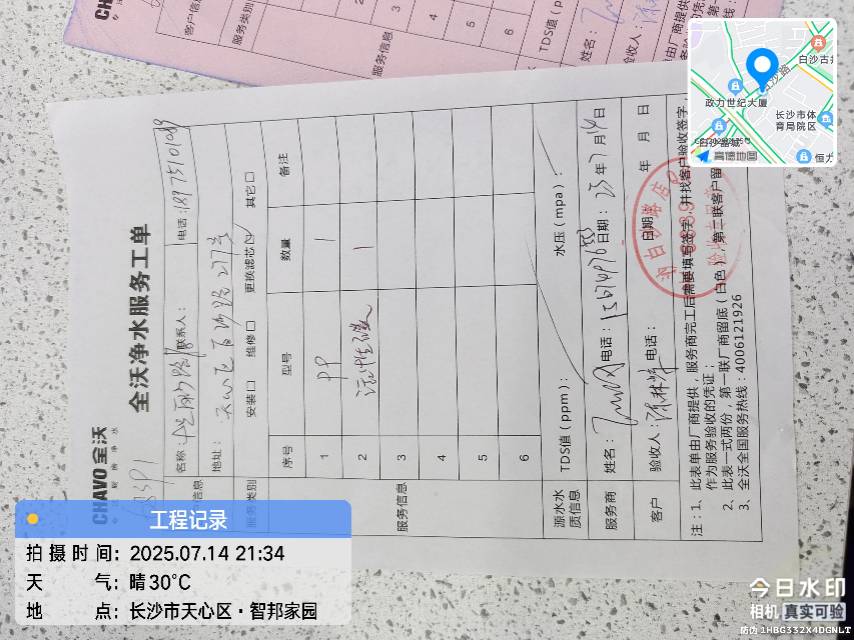 CHAVO全沃
全沃净水服务工单
名称
联系人：
电话：18975101089
地址：天心区白沙路277号
服务类别
安装口
维修口
更换滤芯
其它口
序号
型号
数量
备注
1 PP 1
2 活性炭 1
3
4
5
6
服务信息
源水水质信息
TDS值（ppm）：
水压（mpa）：
服务商
姓名：
电话：
日期：25年7月14日
客户
验收人：
电话：
日期：
年 月 日
注：1、此表单由厂商提供，服务商完工后需要填写签字，并找客户验收签字，
作为服务验收的凭证；
2、此表一式两份，第一联厂商留底（白色），第二联客户留
3、全沃全国服务热线：4006121926
CHAVO
客户信息
服务类别
服务信息
3
4
5
6
TDS值（p
姓名：
验收人：
由厂商提供
工程记录
拍摄时间：2025.07.14 21:34
天 气：晴 30°C
地 点：长沙市天心区·智邦家园
白沙古井
白沙路
政力世纪大厦
长沙市体育局院区
白沙晶城
高德地图
恒力
今日水印
相机 真实可验
防伪 1HBG332X4DGNLT